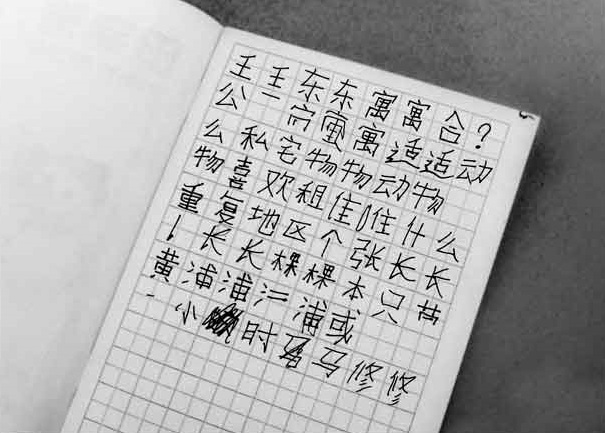 王 王 东 东 寓 寓 合 ?
公 一 寓 适 适 动
么 私 宅 物 物 动 物
物 喜 欢 租 住 什 么
重 复 地 区 个 张 长 长
长 长 棵 棵 本 只
黄 浦 浦 浦 或
小 时 马 修 修